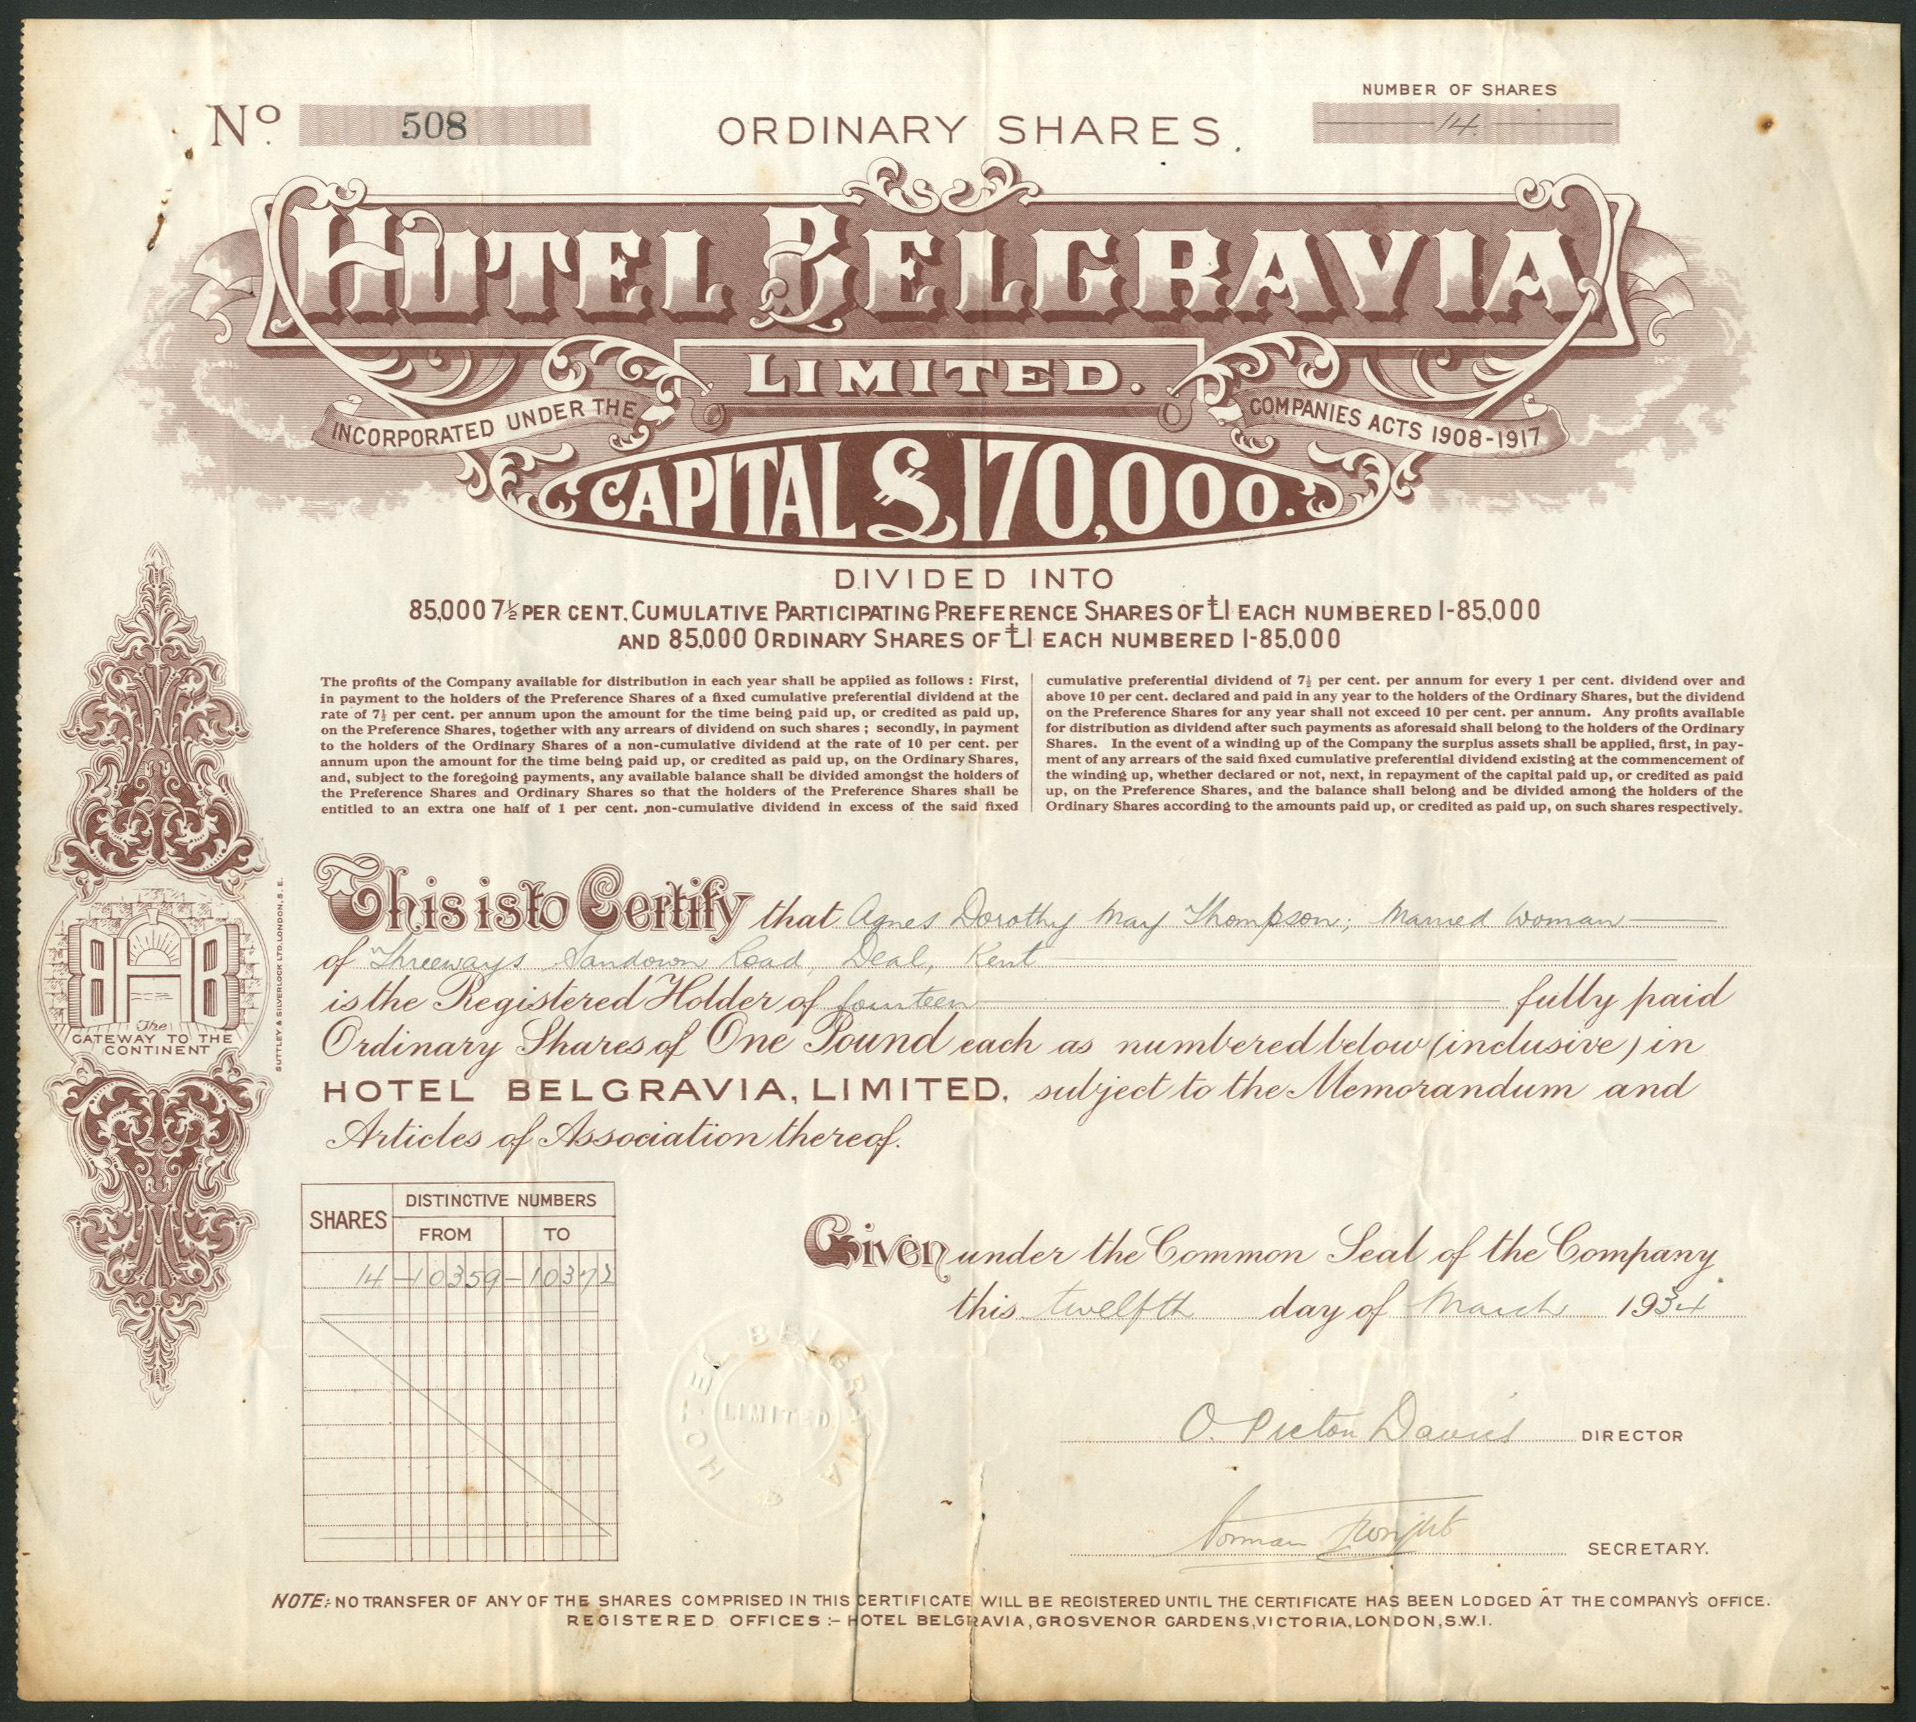 No. 508
ORDINARY SHARES.
NUMBER OF SHARES
14
HOTEL BELGRAVIA
LIMITED.
INCORPORATED UNDER THE COMPANIES ACTS 1908-1917
CAPITAL £170,000.
DIVIDED INTO
85,000 7½ PER CENT. CUMULATIVE PARTICIPATING PREFERENCE SHARES OF £1 EACH NUMBERED 1-85,000
AND 85,000 ORDINARY SHARES OF £1 EACH NUMBERED 1-85,000
The profits of the Company available for distribution in each year shall be applied as follows : First,
in payment to the holders of the Preference Shares of a fixed cumulative preferential dividend at the
rate of 7½ per cent. per annum upon the amount for the time being paid up, or credited as paid up,
on the Preference Shares, together with any arrears of dividend on such shares ; secondly, in payment
to the holders of the Ordinary Shares of a non-cumulative dividend at the rate of 10 per cent. per
annum upon the amount for the time being paid up, or credited as paid up, on the Ordinary Shares,
and, subject to the foregoing payments, any available balance shall be divided amongst the holders of
the Preference Shares and Ordinary Shares so that the holders of the Preference Shares shall be
entitled to an extra one half of 1 per cent. non-cumulative dividend in excess of the said fixed
cumulative preferential dividend of 7½ per cent. per annum for every 1 per cent. dividend over and
above 10 per cent. declared and paid in any year to the holders of the Ordinary Shares, but the dividend
on the Preference Shares for any year shall not exceed 10 per cent. per annum. Any profits available
for distribution as dividend after such payments as aforesaid shall belong to the holders of the Ordinary
Shares. In the event of a winding up of the Company the surplus assets shall be applied, first, in pay-
ment of any arrears of the said fixed cumulative preferential dividend existing at the commencement of
the winding up, whether declared or not, next, in repayment of the capital paid up, or credited as paid
up, on the Preference Shares, and the balance shall belong and be divided among the holders of the
Ordinary Shares according to the amounts paid up, or credited as paid up, on such shares respectively.
This is to Certify that Agnes Dorothy May Thompson; Married Woman
of "Threeways" Sandown Road, Deal, Kent
is the Registered Holder of fourteen fully paid
Ordinary Shares of One Pound each as numbered below (inclusive) in
HOTEL BELGRAVIA, LIMITED, subject to the Memorandum and
Articles of Association thereof.
HB
The
GATEWAY TO THE
CONTINENT
SUTTLEY & SILVERLOCK LTD. LONDON, S.E.
SHARES
DISTINCTIVE NUMBERS
FROM TO
14 - 10359 - 10372
Given under the Common Seal of the Company
this twelfth day of March 1934
HOTEL BELGRAVIA
LIMITED
O. Picton Davies DIRECTOR
Norman Wright SECRETARY.
NOTE:- NO TRANSFER OF ANY OF THE SHARES COMPRISED IN THIS CERTIFICATE WILL BE REGISTERED UNTIL THE CERTIFICATE HAS BEEN LODGED AT THE COMPANY'S OFFICE.
REGISTERED OFFICES :- HOTEL BELGRAVIA, GROSVENOR GARDENS, VICTORIA, LONDON, S.W.1.